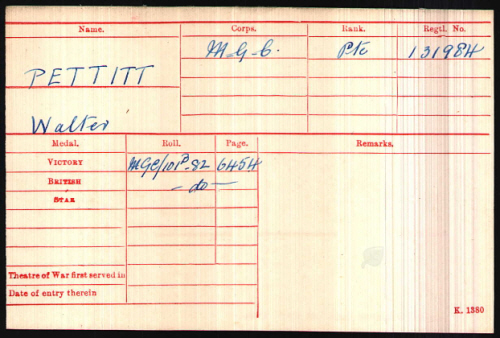 Name. Corps. Rank. Regtl. No.
PETTITT M.G.C. Pte 131984
Walter
Medal. Roll. Page. Remarks.
VICTORY MGC/101B82 6454
BRITISH — do —
STAR
Theatre of War first served in
Date of entry therein
K. 1380